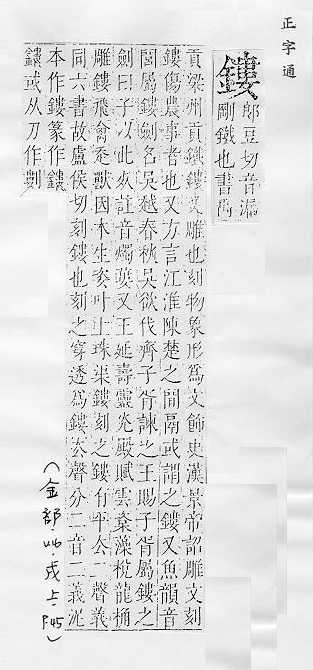 正字通
鏤
郎豆切音漏
剛鐵也書禹
貢梁州貢鐵鏤又雕也刻物象形爲文飾史漢景帝詔雕文刻
鏤傷農事者也又方言江淮陳楚之間鬲或謂之鏤又魚韻音
閭屬鏤劍名吳越春秋吳欲伐齊子胥諫之王賜子胥屬鏤之
劍曰子以此死註音燭婁又王延壽靈光殿賦雲楶藻梲龍桷
雕鏤飛禽走獸因木生姿叶上珠渠鏤刻之鏤有平去二聲義
同六書故盧侯切刻鏤也刻之穿透爲鏤去聲分二音二義泥
本作鏤篆作鏤
鏤或从刀作剅
(金部 戌上 P45)